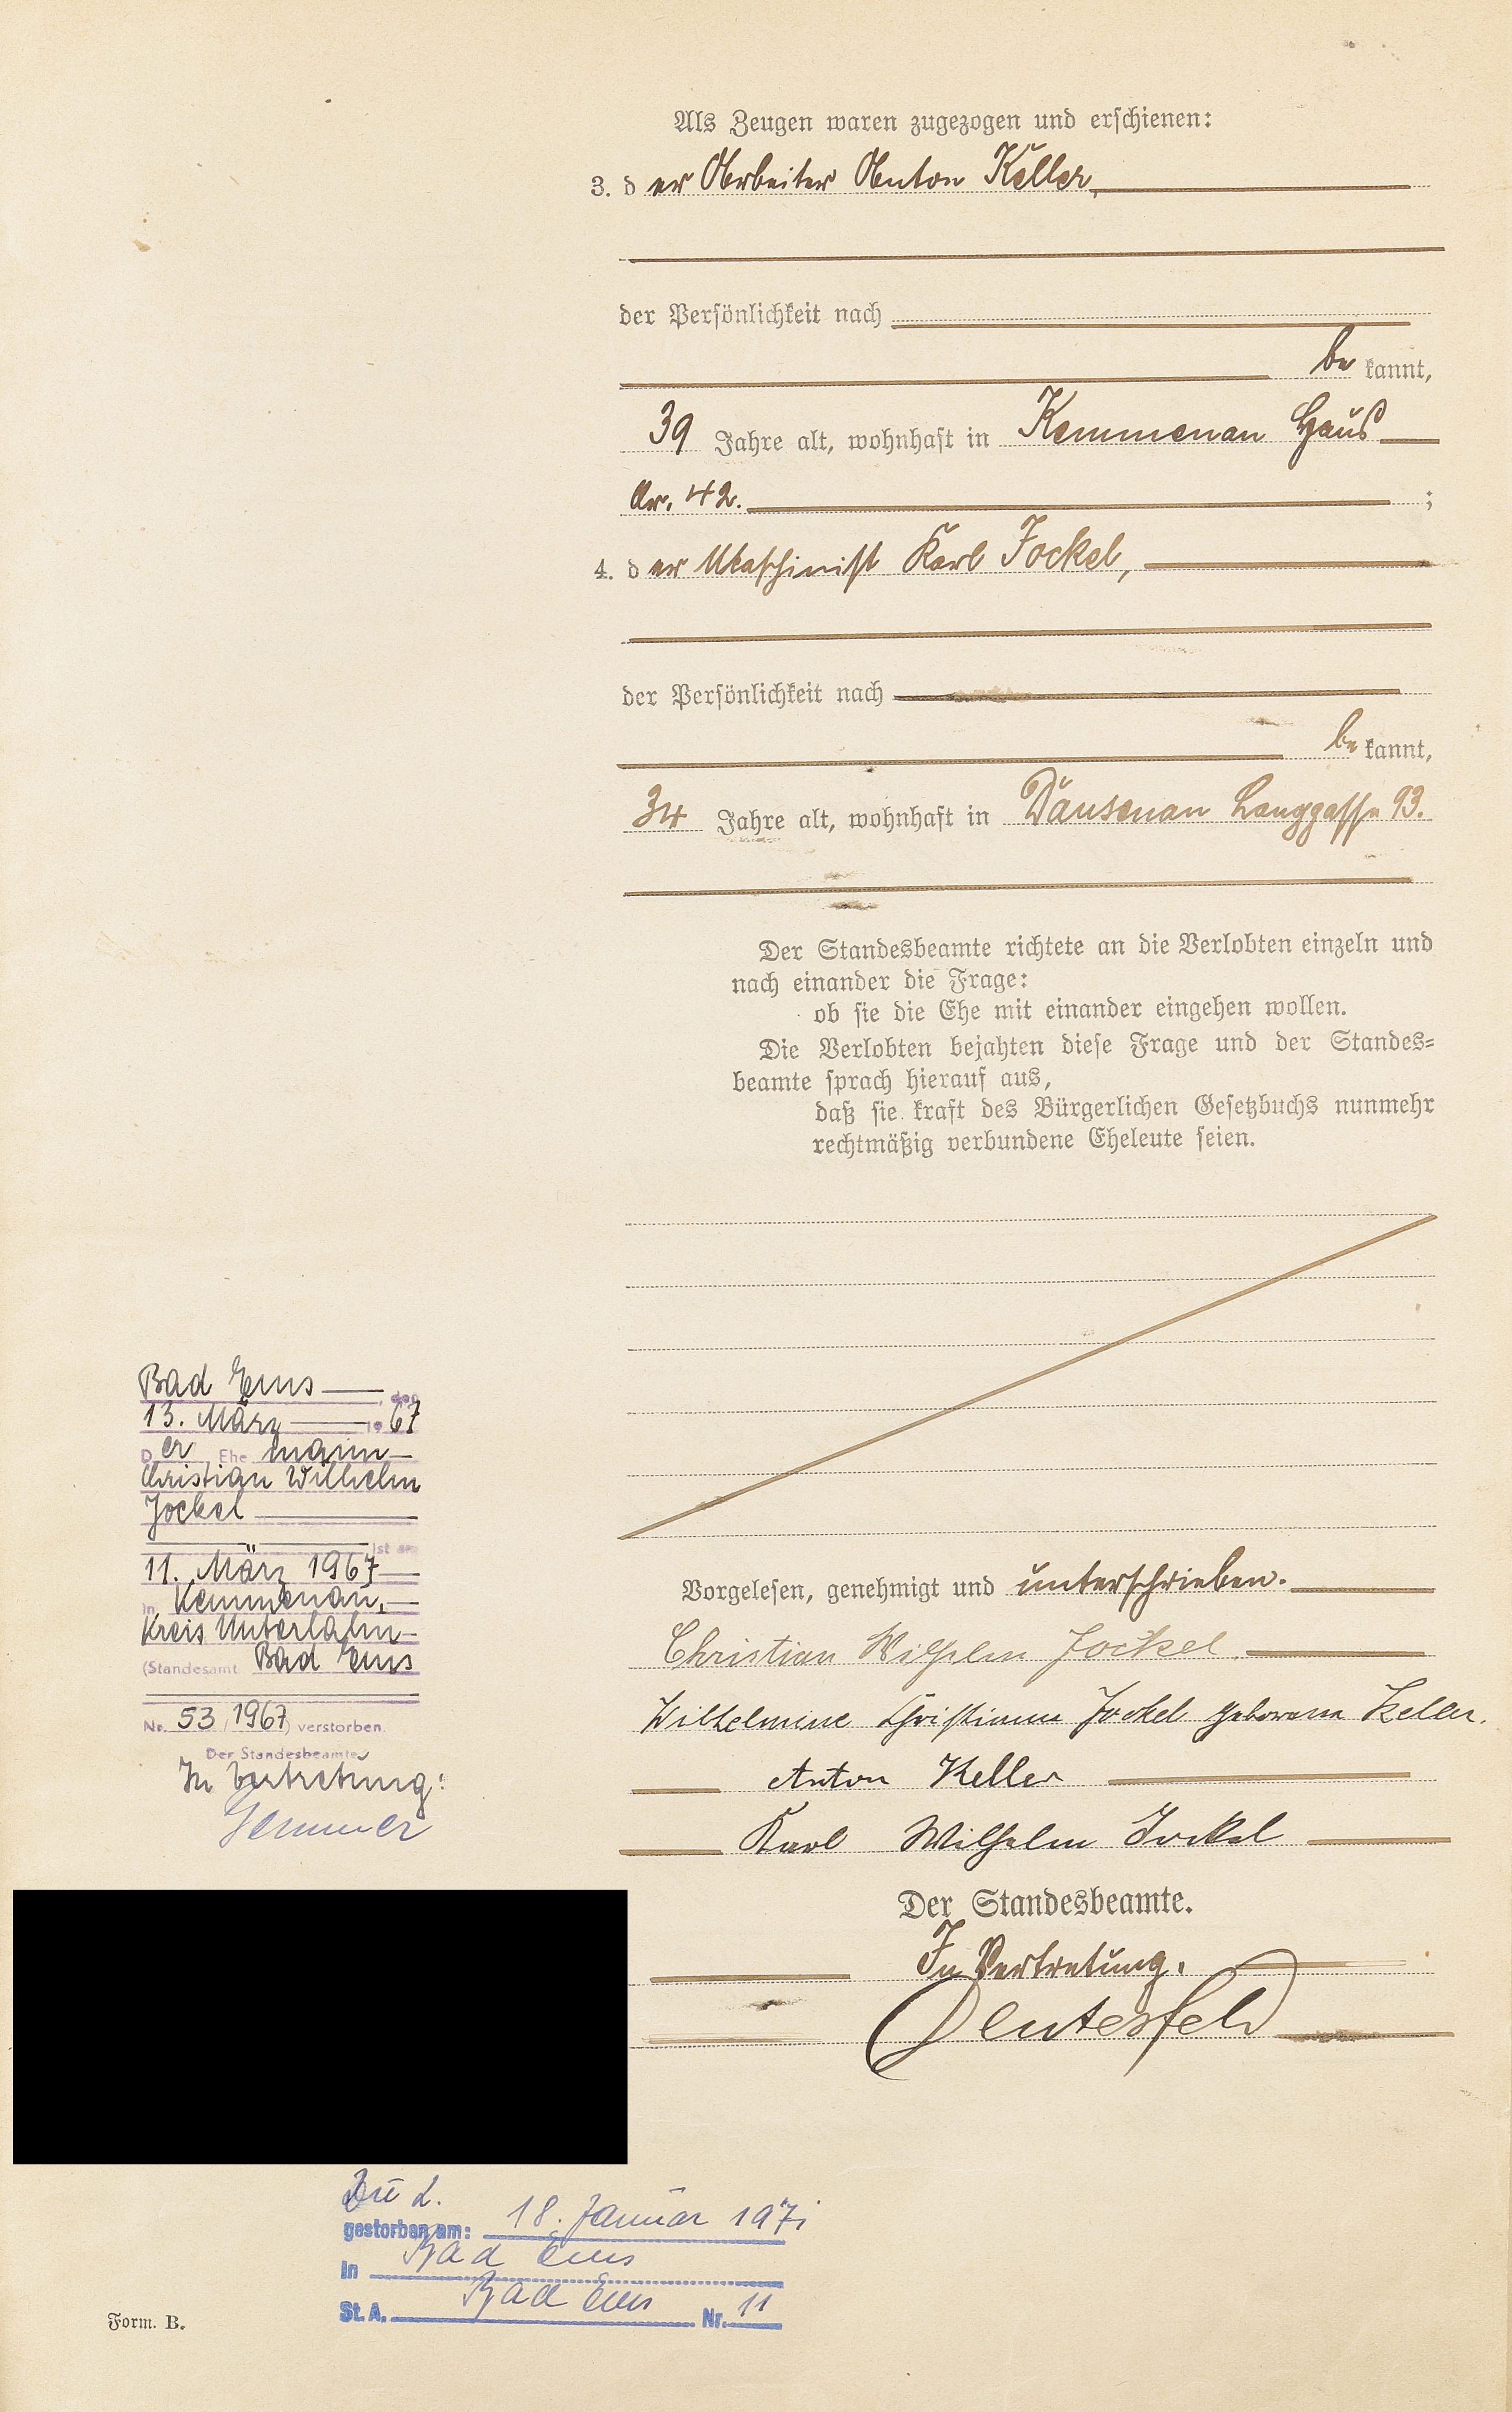 Als Zeugen waren zugezogen und erschienen:
3. der Arbeiter Anton Keller,
der Persönlichkeit nach
bekannt,
39 Jahre alt, wohnhaft in Kemmenau Haus
Nr. 42. ;
4. der Maschinist Karl Jockel,
der Persönlichkeit nach
bekannt,
34 Jahre alt, wohnhaft in Dausenau Langgasse 93.
Der Standesbeamte richtete an die Verlobten einzeln und
nach einander die Frage:
ob sie die Ehe mit einander eingehen wollen.
Die Verlobten bejahten diese Frage und der Standes=
beamte sprach hierauf aus,
daß sie kraft des Bürgerlichen Gesetzbuchs nunmehr
rechtmäßig verbundene Eheleute seien.
Vorgelesen, genehmigt und unterschrieben.
Christian Wilhelm Jockel
Wilhelmine Christiane Jockel geborene Keller.
Anton Keller
Karl Wilhelm Jockel
Der Standesbeamte.
In Vertretung.
Bad Ems, den
13. März 1967
Der Ehemann
Christian Wilhelm
Jockel
ist am
11. März 1967
in Kemmenau,
Kreis Unterlahn
(Standesamt Bad Ems
Nr. 53/1967) verstorben.
Der Standesbeamte
In Vertretung:
gestorben am: 18. Januar 1971
in Bad Ems
St. A. Bad Ems Nr. 11
Form. B.